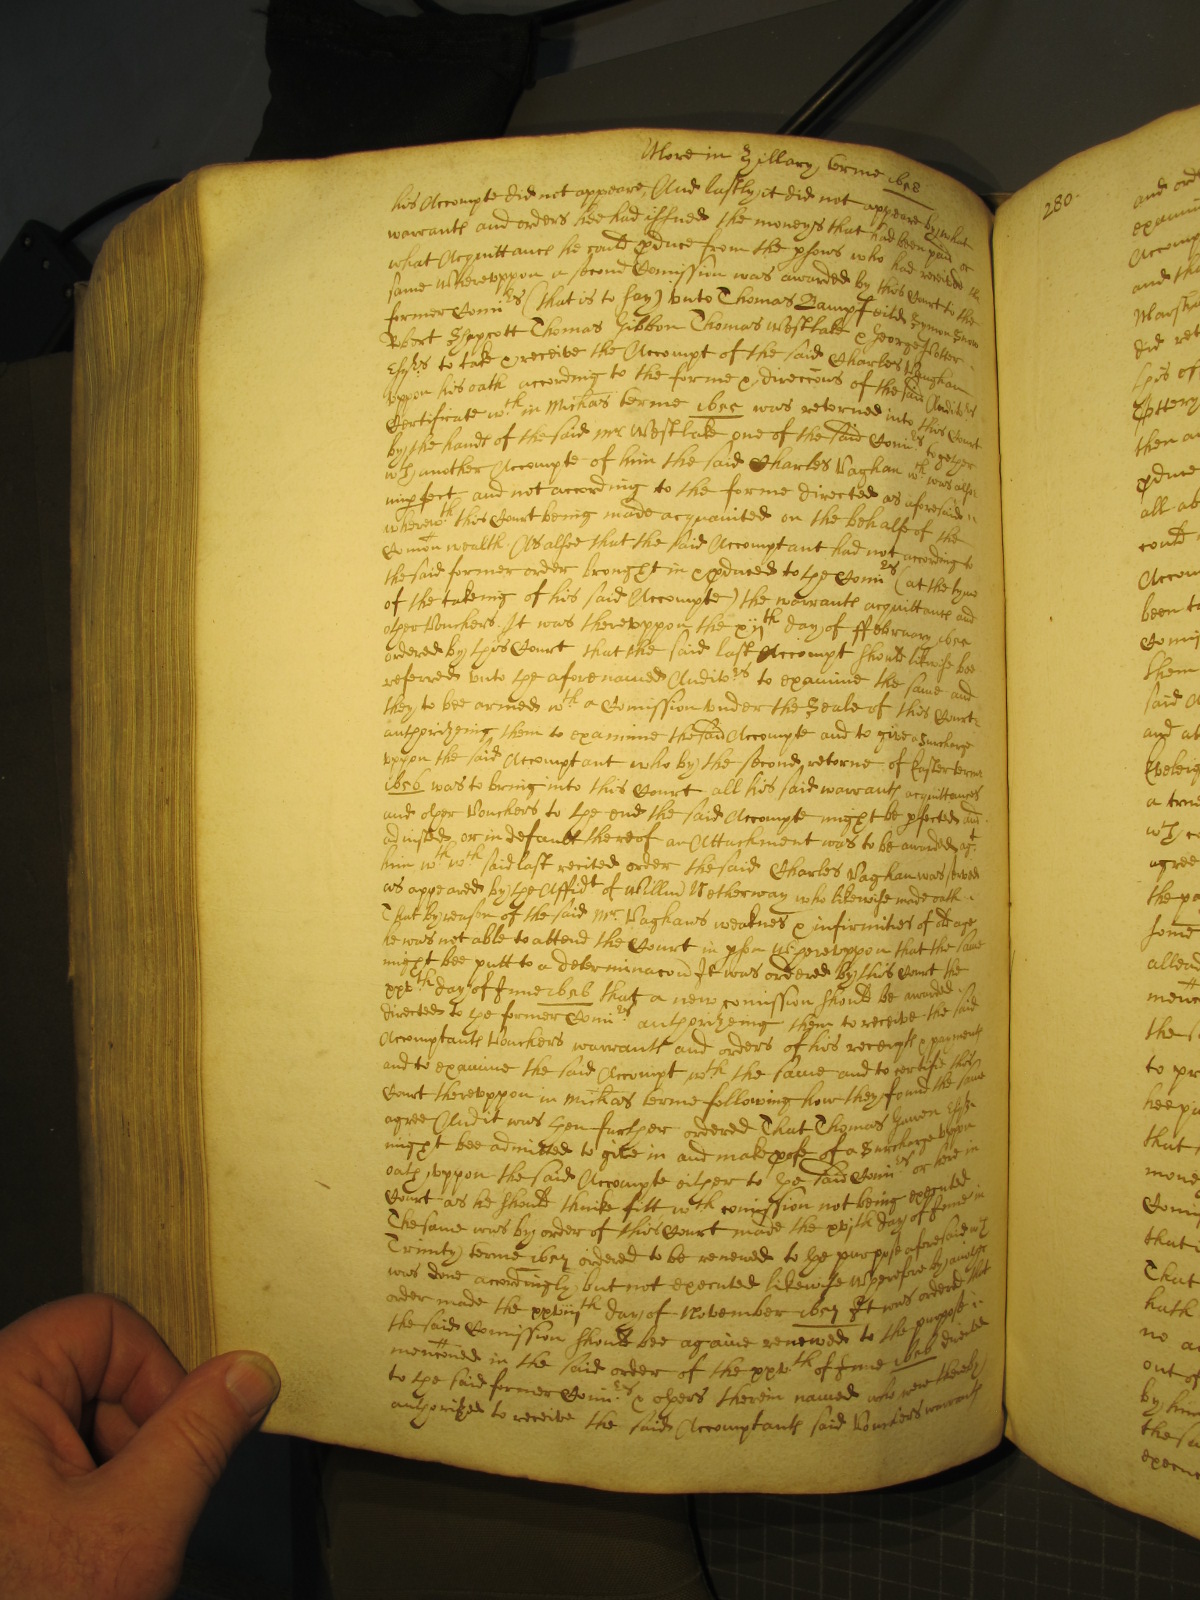 More in Hillary terme 1658
his Accompte did not appeare, And lastly it did not appeare by what
warrants and orders hee had issued the moneys that had been paid or
what Acquittance he could pduce from the psons who had received the
same Wherevppon a second Comission was awarded by this Court to the
former Comirs (that is to say) vnto Thomas Bampfeild Symon Snow
Robert Shapcott Thomas Gibbon Thomas Westlake & George Potter
Esqrs to take & receive the Accompt of the said Charles Vaughan
vppon his oath according to the forme & direccons of the said Auditors
Certificate wch in Michas terme 1655 was retorned into this Court
by the hands of the said Mr Westlake one of the said Comirs together
wth another Accompte of him the said Charles Vaghan wch was also
impfect and not according to the forme directed as aforesaid
wherewth this Court being made acquainted on the behalfe of the
Comon wealth As alsoe that the said Accomptant had not according to
the said former order brought in & pduced to the Comirs (at the tyme
of the takeing of his said Accompte) the warrants acquittances and
other Vouchers. It was therevppon the xijth day of ffebruary 1655
ordered by this Court that the said last Accompt should likewise bee
referred vnto the aforenamed Auditors to examine the same and
they to bee armed wth a Comission vnder the Seale of this Court
authorizeing them to examine the said Accompte and to give a Surcharge
vppon the said Accomptant who by the second retorne of Easter terme
1656 was to bring into this Court all his said warrants acquittances
and other Vouchers to the end the said Accompte might be pfected and
adiusted, or in default thereof an Attachment was to be awarded agt
him wth wch said last recited order the said Charles Vaghan was served
as appeared by the Affidt of Willm Netherway who likewise made oath
That by reason of the said Mr Vaghans weaknes & infirmities of old age
he was not able to attend the Court in pson Wherevppon that the same
might bee putt to a determinacon It was ordered by this Court the
xxvth day of June 1656 that a new comission should be awarded
directed to the former Comirs authorizeing them to receive the said
Accomptants Vouchers warrants and orders of his receipts & payments
and to examine the said Accompt wth the same and to certifie this
Court therevppon in Michas terme following how they found the same
agree And it was then further ordered That Thomas Gawen Esqr
might bee admitted to give in and make pofe of a Surcharge vpon
oath, vppon the said Accompte either to the said Comirs or here in
Court as he should thinke fitt wch comission not being executed
The same was by order of this Court made the xxvjth day of June in
Trinity terme 1657 ordered to be renewed to the purpose aforesaid wch
was done accordingly but not executed likewise Wherefore by another
order made the xxviijth day of November 1657 It was ordered that
the said Comission should bee againe renewed to the purpose
mencioned in the said order of the xxvth of June 1656 directed
to the said former Comirs & others therein named who were thereby
authorized to receive the said Accomptants said Vouchers warrants
280